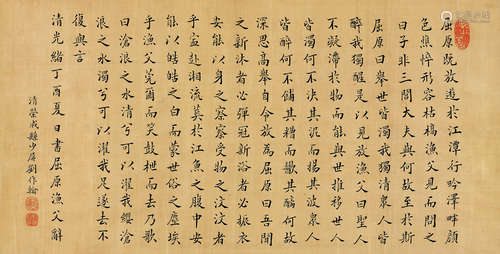 屈原既放遊於江潭行吟澤畔顏
色憔悴形容枯槁漁父見而問之
曰子非三閭大夫與何故至於斯
屈原曰舉世皆濁我獨清眾人皆
醉我獨醒是以見放漁父曰聖人
不凝滯於物而能與世推移世人
皆濁何不淈其泥而揚其波眾人
皆醉何不餔其糟而歠其醨何故
深思高舉自令放為屈原曰吾聞
之新沐者必彈冠新浴者必振衣
安能以身之察察受物之汶汶者
乎寧赴湘流葬於江魚之腹中安
能以皓皓之白而蒙世俗之塵埃
乎漁父莞爾而笑鼓枻而去乃歌
曰滄浪之水清兮可以濯我纓滄
浪之水濁兮可以濯我足遂去不
復與言
清光緒丁酉夏日書屈原漁父辭
清榮成縣少唐劉作翰